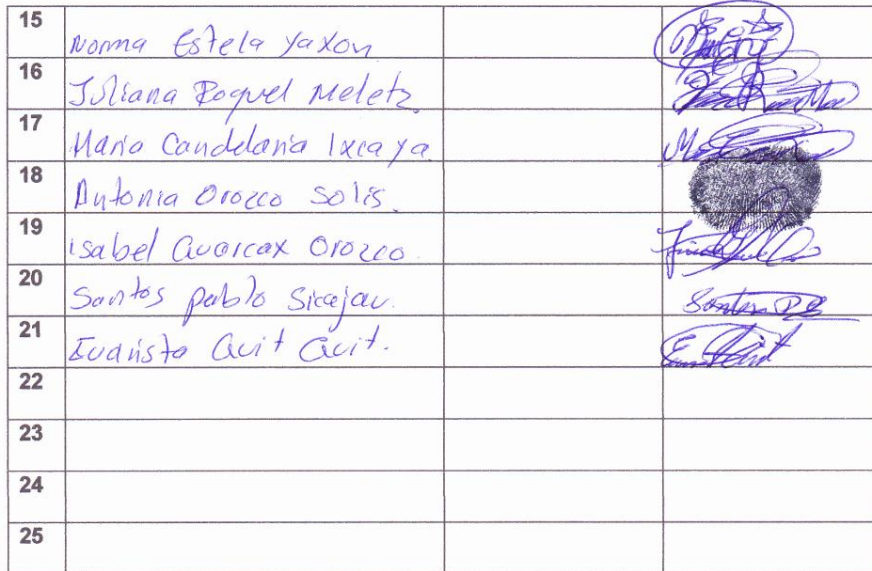 15 Norma Estela Yaxon
16 Juliana Roquel Meletz.
17 Maria Candelaria Ixcaya
18 Antonia Orozco Solis.
19 isabel Cuarcax Orozco.
20 Santos pablo Sicajau.
21 Evaristo Cuit Cuit.
22
23
24
25